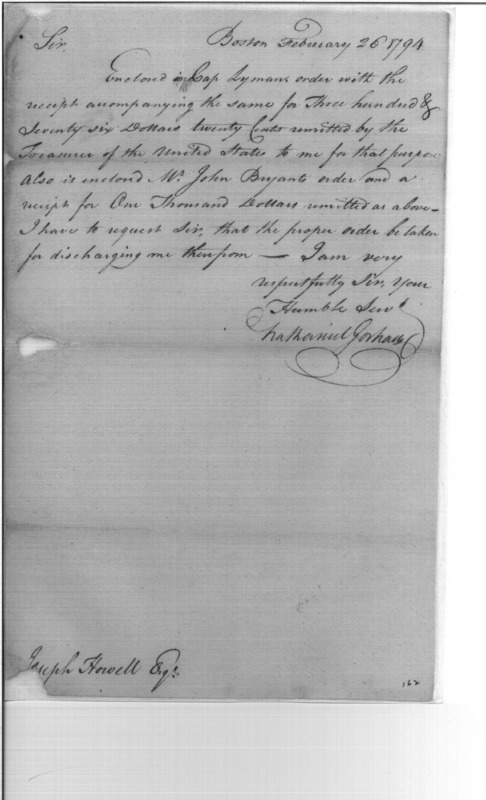 Boston February 26 1794
Sir,
Enclosed is Cap Lymans order with the
receipt accompanying the same for Three hundred &
Seventy six Dollars twenty Cents remitted by the
Treasurer of the United States to me for that purpose
also is enclosed Mr. John Bryants order and a
receipt for One Thousand Dollars remitted as above—
I have to request Sir, that the proper order be taken
for discharging me therefrom — I am very
respectfully Sir, your
Humble Servt
Nathaniel Gorham
Joseph Howell Esqr
162